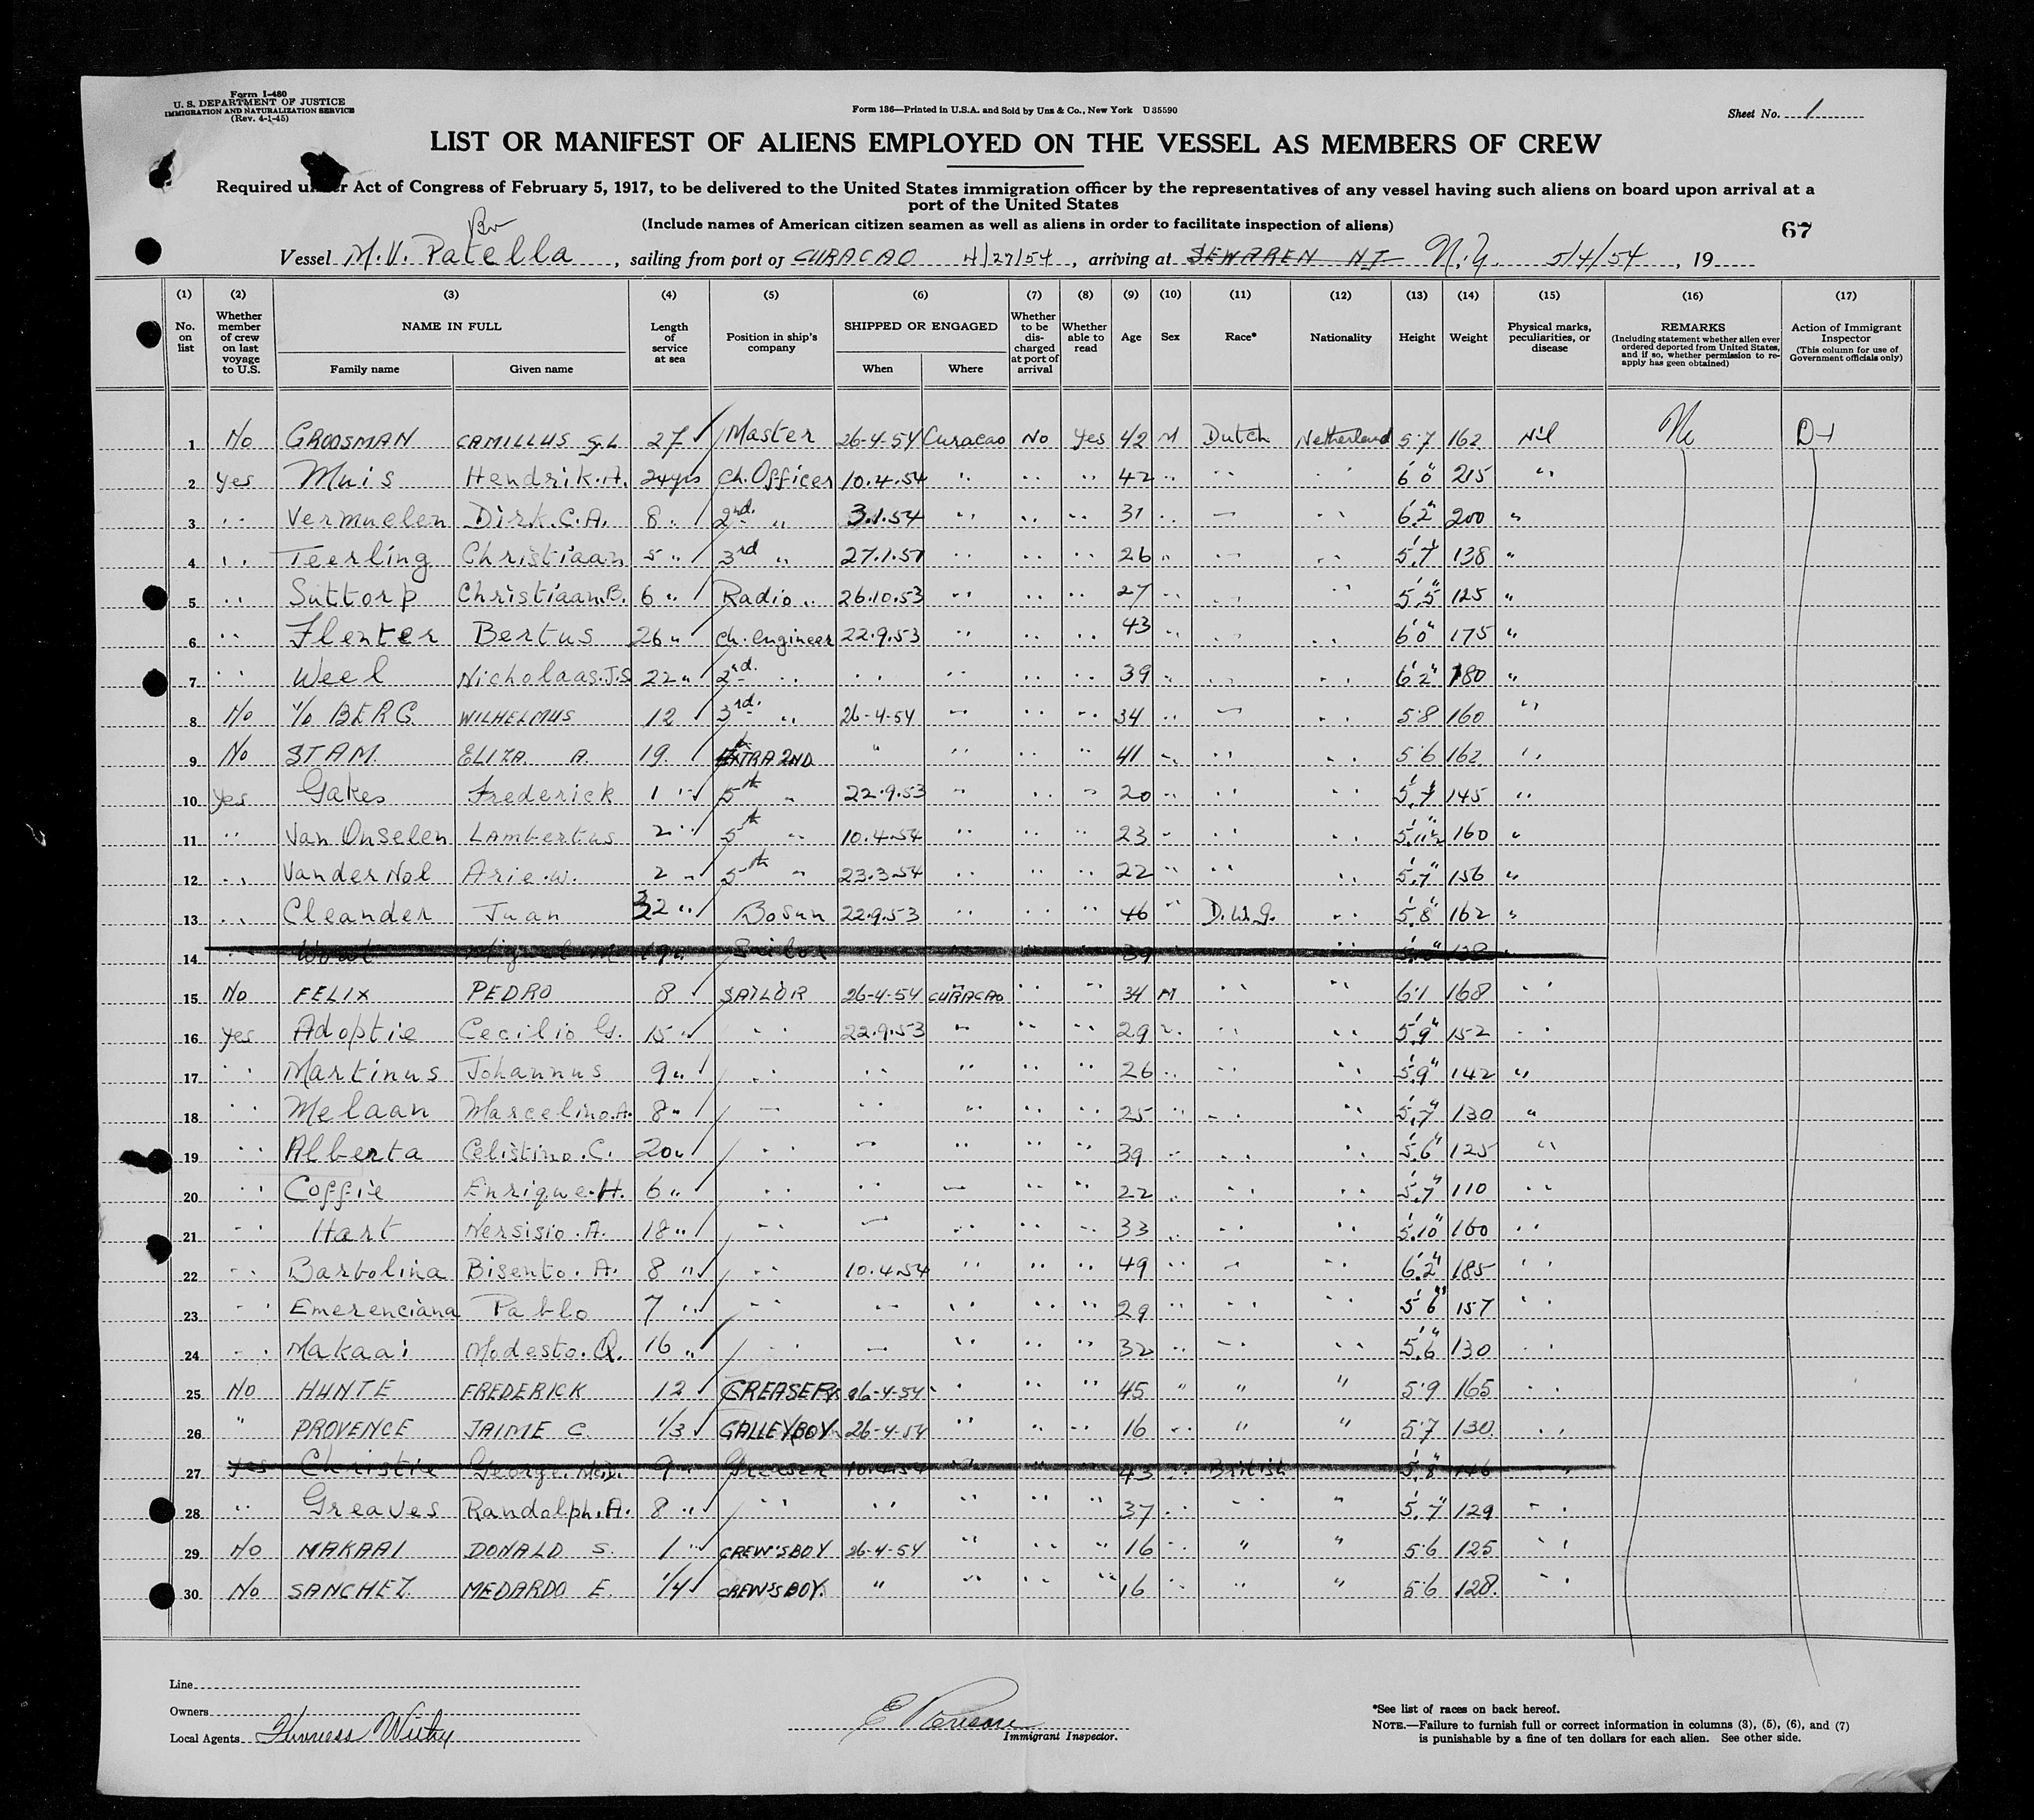 Form I-480
U. S. DEPARTMENT OF JUSTICE
IMMIGRATION AND NATURALIZATION SERVICE
(Rev. 4-1-45)
Form 136—Printed in U.S.A. and Sold by Unz & Co., New York U 35590
Sheet No. 1
LIST OR MANIFEST OF ALIENS EMPLOYED ON THE VESSEL AS MEMBERS OF CREW
Required under Act of Congress of February 5, 1917, to be delivered to the United States immigration officer by the representatives of any vessel having such aliens on board upon arrival at a
port of the United States
(Include names of American citizen seamen as well as aliens in order to facilitate inspection of aliens)
67
Br
Vessel M.V. Patella, sailing from port of CURACAO 4/27/54, arriving at SEWAREN NJ N.Y. 5/4/54, 19
(1) (2) (3) (4) (5) (6) (7) (8) (9) (10) (11) (12) (13) (14) (15) (16) (17)
No. on list
Whether member of crew on last voyage to U.S.
NAME IN FULL
Family name
Given name
Length of service at sea
Position in ship's company
SHIPPED OR ENGAGED
When
Where
Whether to be discharged at port of arrival
Whether able to read
Age
Sex
Race*
Nationality
Height
Weight
Physical marks, peculiarities, or disease
REMARKS
(Including statement whether alien ever ordered deported from United States, and if so, whether permission to re-apply has geen obtained)
Action of Immigrant Inspector
(This column for use of Government officials only)
1 No GROOSMAN CAMILLUS G.L 27 Master 26-4-54 Curacao No Yes 42 M Dutch Netherland 5'7 162 Nil No D-1
2 Yes Muis Hendrik.A. 24yrs Ch.Officer 10.4.54 " " " 42 " " " 6'0" 215 "
3 " Vermuelen Dirk.C.A. 8 " 2nd. " 3.1.54 " " " 31 " " " 6'2" 200 "
4 " Teerling Christiaan 5 " 3rd " 27.1.51 " " " 26 " " " 5'7" 138 "
5 " Suttorp Christiaan.B. 6 " Radio " 26.10.53 " " " 27 " " " 5'5" 125 "
6 " Flenter Bertus 26 " Ch.engineer 22.9.53 " " " 43 " " " 6'0" 175 "
7 " Weel Nicholaas.J.S 22 " 2nd. " " " " " 39 " " " 6'2" 180 "
8 No v/d BERG WILHELMUS 12 3rd. " 26-4-54 " " " 34 " " " 5'8 160 "
9 No STAM ELIZA A. 19 EXTRA 2ND " " " " 41 " " " 5'6 162 "
10 Yes Gakes Frederick 1 " 5th " 22.9.53 " " " 20 " " " 5'7" 145 "
11 " Van Onselen Lambertus 2 " 5th " 10.4.54 " " " 23 " " " 5'11½" 160 "
12 " Vander Nol Arie.W. 2 " 5th " 23.3.54 " " " 22 " " " 5'7" 156 "
13 " Cleander Juan 32 " Bosun 22.9.53 " " " 46 " D.W.I. " 5'8" 162 "
14 " 19 " Sailor 39
15 No FELIX PEDRO 8 SAILOR 26-4-54 CURACAO " " 34 M " " 6'1 168 "
16 Yes Adoptie Cecilio G. 15 " " 22.9.53 " " " 29 " " " 5'9" 152 "
17 " Martinus Johannus 9 " " " " " " 26 " " " 5'9" 142 "
18 " Melaan Marcelino.A. 8 " " " " " " 25 " " " 5'7" 130 "
19 " Alberta Celistino.C. 20 " " " " " " 39 " " " 5'6" 125 "
20 " Coffie Enrique.H. 6 " " " " " " 22 " " " 5'7" 110 "
21 " Hart Nersisio.A. 18 " " " " " " 33 " " " 5'10" 160 "
22 " Barbolina Bisento.A. 8 " " 10.4.54 " " " 49 " " " 6'2" 185 "
23 " Emerenciana Pablo 7 " " " " " " 29 " " " 5'6" 157 "
24 " Makaai Modesto.Q. 16 " " " " " " 32 " " " 5'6" 130 "
25 No HUNTE FREDERICK 12 GREASER 26-4-54 " " " 45 " " " 5'9 165 "
26 " PROVENCE JAIME C. 1/3 GALLEYBOY 26-4-54 " " " 16 " " " 5'7 130 "
27 Yes Christie George. 9 " Greaser 10.4.54 " " " 43 " British 5'8" 146 "
28 " Greaves Randolph.A. 8 " " " " " " 37 " " " 5'7" 129 "
29 No MAKAAI DONALD S. 1 " CREW'SBOY 26-4-54 " " " 16 " " " 5'6 125 "
30 No SANCHEZ MEDARDO E. 1/4 CREW'SBOY. " " " " 16 " " " 5'6 128 "
Line
Owners
Local Agents Furness Withy
Immigrant Inspector.
*See list of races on back hereof.
NOTE.—Failure to furnish full or correct information in columns (3), (5), (6), and (7)
is punishable by a fine of ten dollars for each alien. See other side.